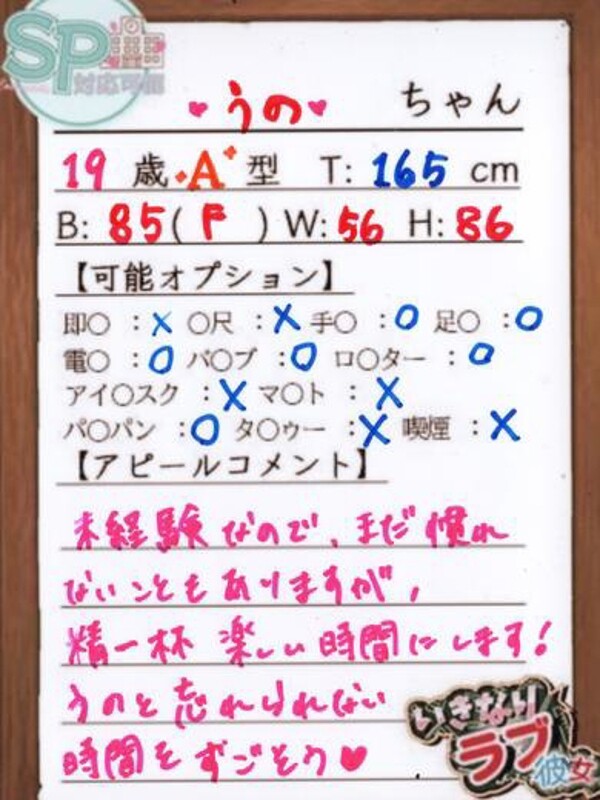 SP
対応可能
うの ちゃん
19 歳 A 型 T: 165 cm
B: 85 ( F ) W: 56 H: 86
【可能オプション】
即〇 : X 〇尺 : X 手〇 : O 足〇 : O
電〇 : O バ〇ブ : O ロ〇ター : O
アイ〇スク : X マ〇ト : X
パ〇パン : O タ〇ゥー : X 喫煙 : X
【アピールコメント】
未経験なので、まだ慣れ
ないこともありますが,
精一杯 楽しい時間にします!
うのと忘れられない
時間をすごそう♥
いきなり
ラブ彼女